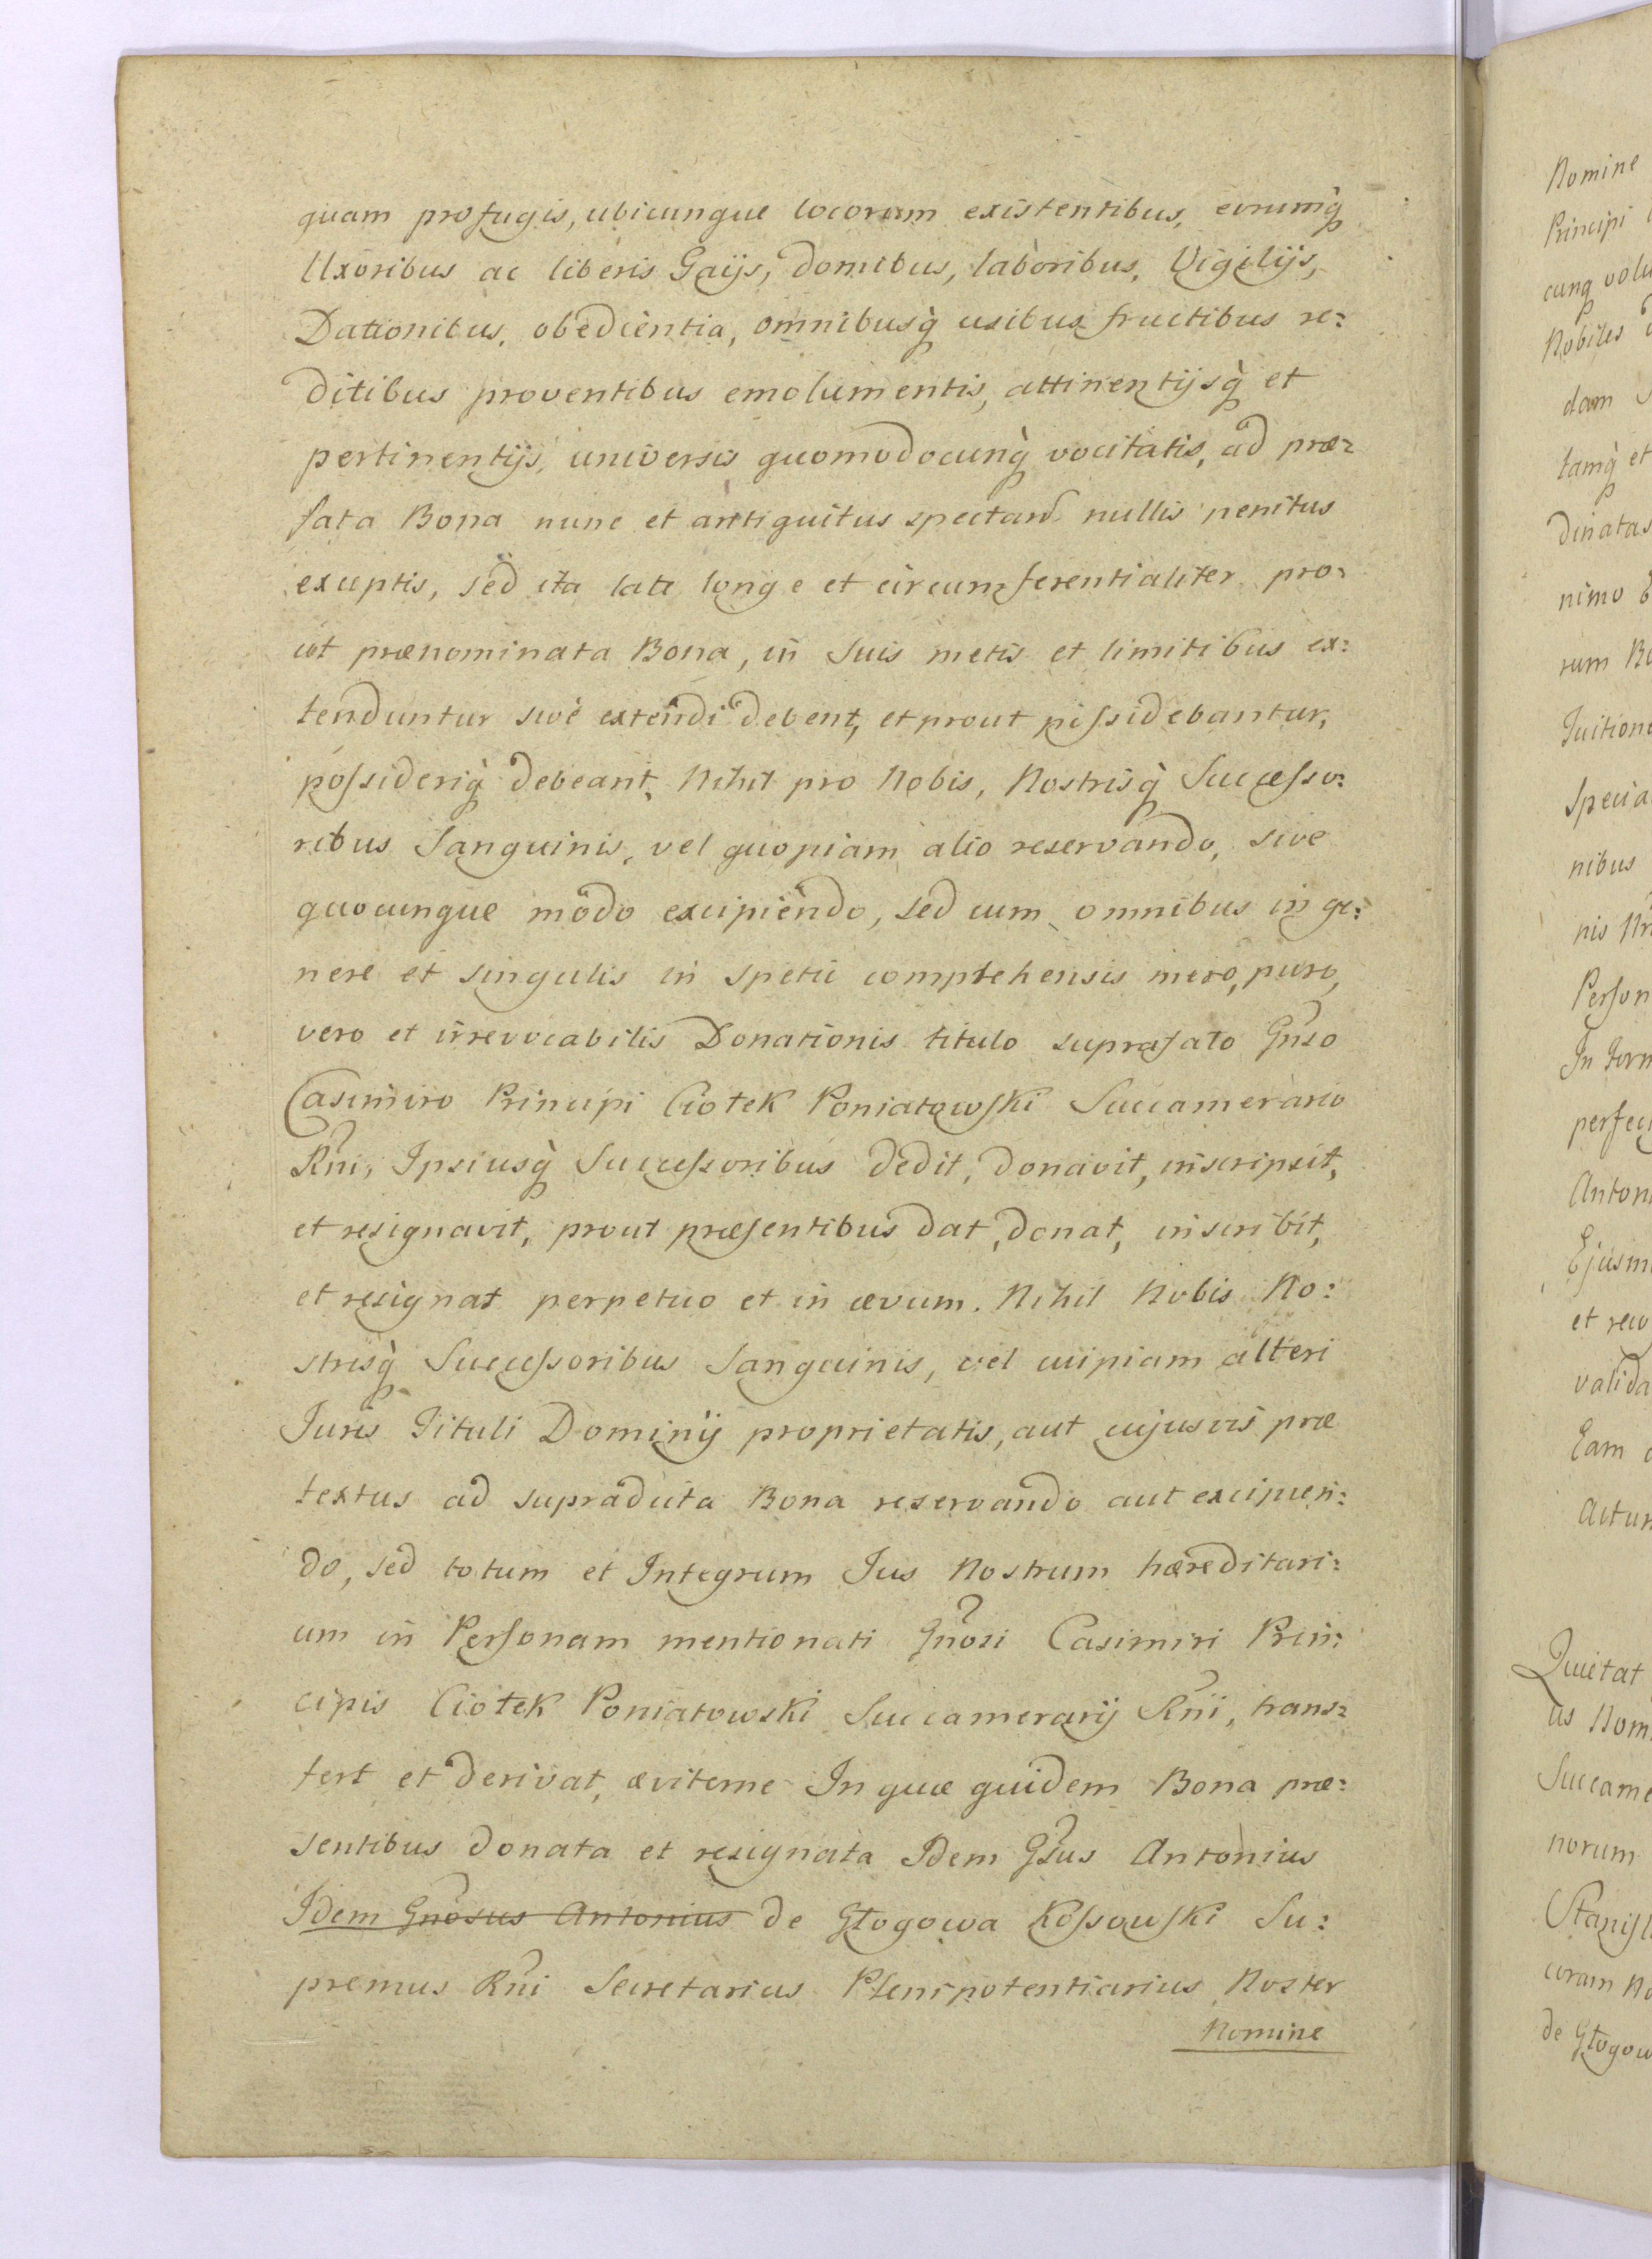 quam profugis, ubicunque locorum existentibus, eorumq̀
Uxoribus ac liberis Gaijs, domibus, laboribus, Vigilijs,
Dationibus, obedientia, omnibusq̀ usibus fructibus re:
ditibus proventibus emolumentis, attinentijsq̀ et
pertinentijs, universis quomodocunq̀ vocitatis, ad præ:
fata Bona nunc et antiquitus spectan̄ nullis penitus
exceptis, sed ita late longe et circumferentialiter pro:
ut prænominata Bona, in suis metis et limitibus ex:
tenduntur sive extendi debent, et prout possidebantur,
possideriq̀ debeant, Nihil pro Nobis, Nostrisq̀ Successo:
ribus Sanguinis, vel quopiam alio reservando, sive
quocunque modo excipiendo, sed cum omnibus in ge:
nere et singulis in spetie comprehensis mero, puro,
vero et irrevocabilis Donationis titulo suprafato Gnso
Casimiro Principi Ciołek Poniatowski Succamerario
Rni, Ipsiusq̀ Successoribus dedit, donavit, inscripsit,
et resignavit, prout præsentibus dat, donat, inscribit,
et resignat perpetuo et in ævum. Nihil Nobis No:
strisq̀ Successoribus Sanguinis, vel cuipiam alteri
Juris Tituli Dominij proprietatis, aut cujusvis præ
textus ad supradicta Bona reservando aut excipien:
do, sed totum et Integrum Jus Nostrum hæreditari:
um in Personam mentionati Gnosi Casimiri Prin:
cipis Ciołek Poniatowski Succamerarij Rni, trans:
fert et derivat, æviterne In quæ quidem Bona præ:
sentibus donata et resignata Idem Gsus Antonius
Idem Gnosus Antonius de Głogowa Kossowski Su:
premus Rni Secretarius Plenipotentiarius Noster
Nomine
Nomine
Principi
cunq
Nobiles
dam
tamq̀ et
dinatas
nimo
rum
Tuitione
Specia
nibus
nis
Person
In
perfec
Anton
Ejusm
et reco
valida
Eam
Actum
Quietat
us Nom
Succame
norum
Stanisl
coram No
de Głogow